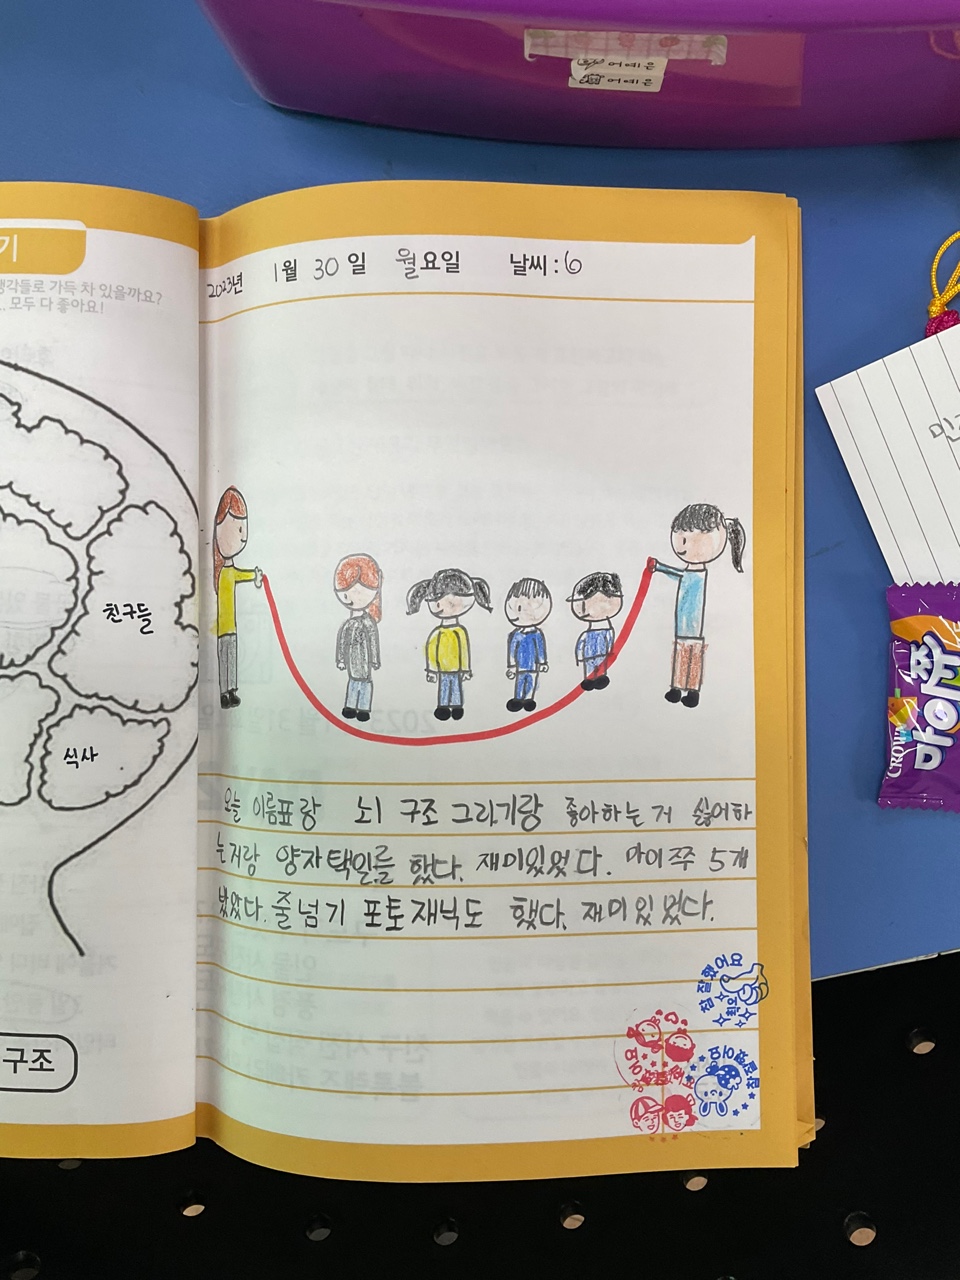 어예은
어예은
기
생각들로 가득 차 있을까요?
모두 다 좋아요!
2023년 1월 30일 월요일 날씨:
친구들
식사
구조
오늘 이름표랑 뇌 구조 그리기랑 좋아하는 거 싫어하
는거랑 양자택일를 했다. 재미있었다. 마이쮸 5개
봤았다. 줄넘기 포토재닉도 했다. 재미있었다.
참 잘했어요
최고
CROWN
마이쮸